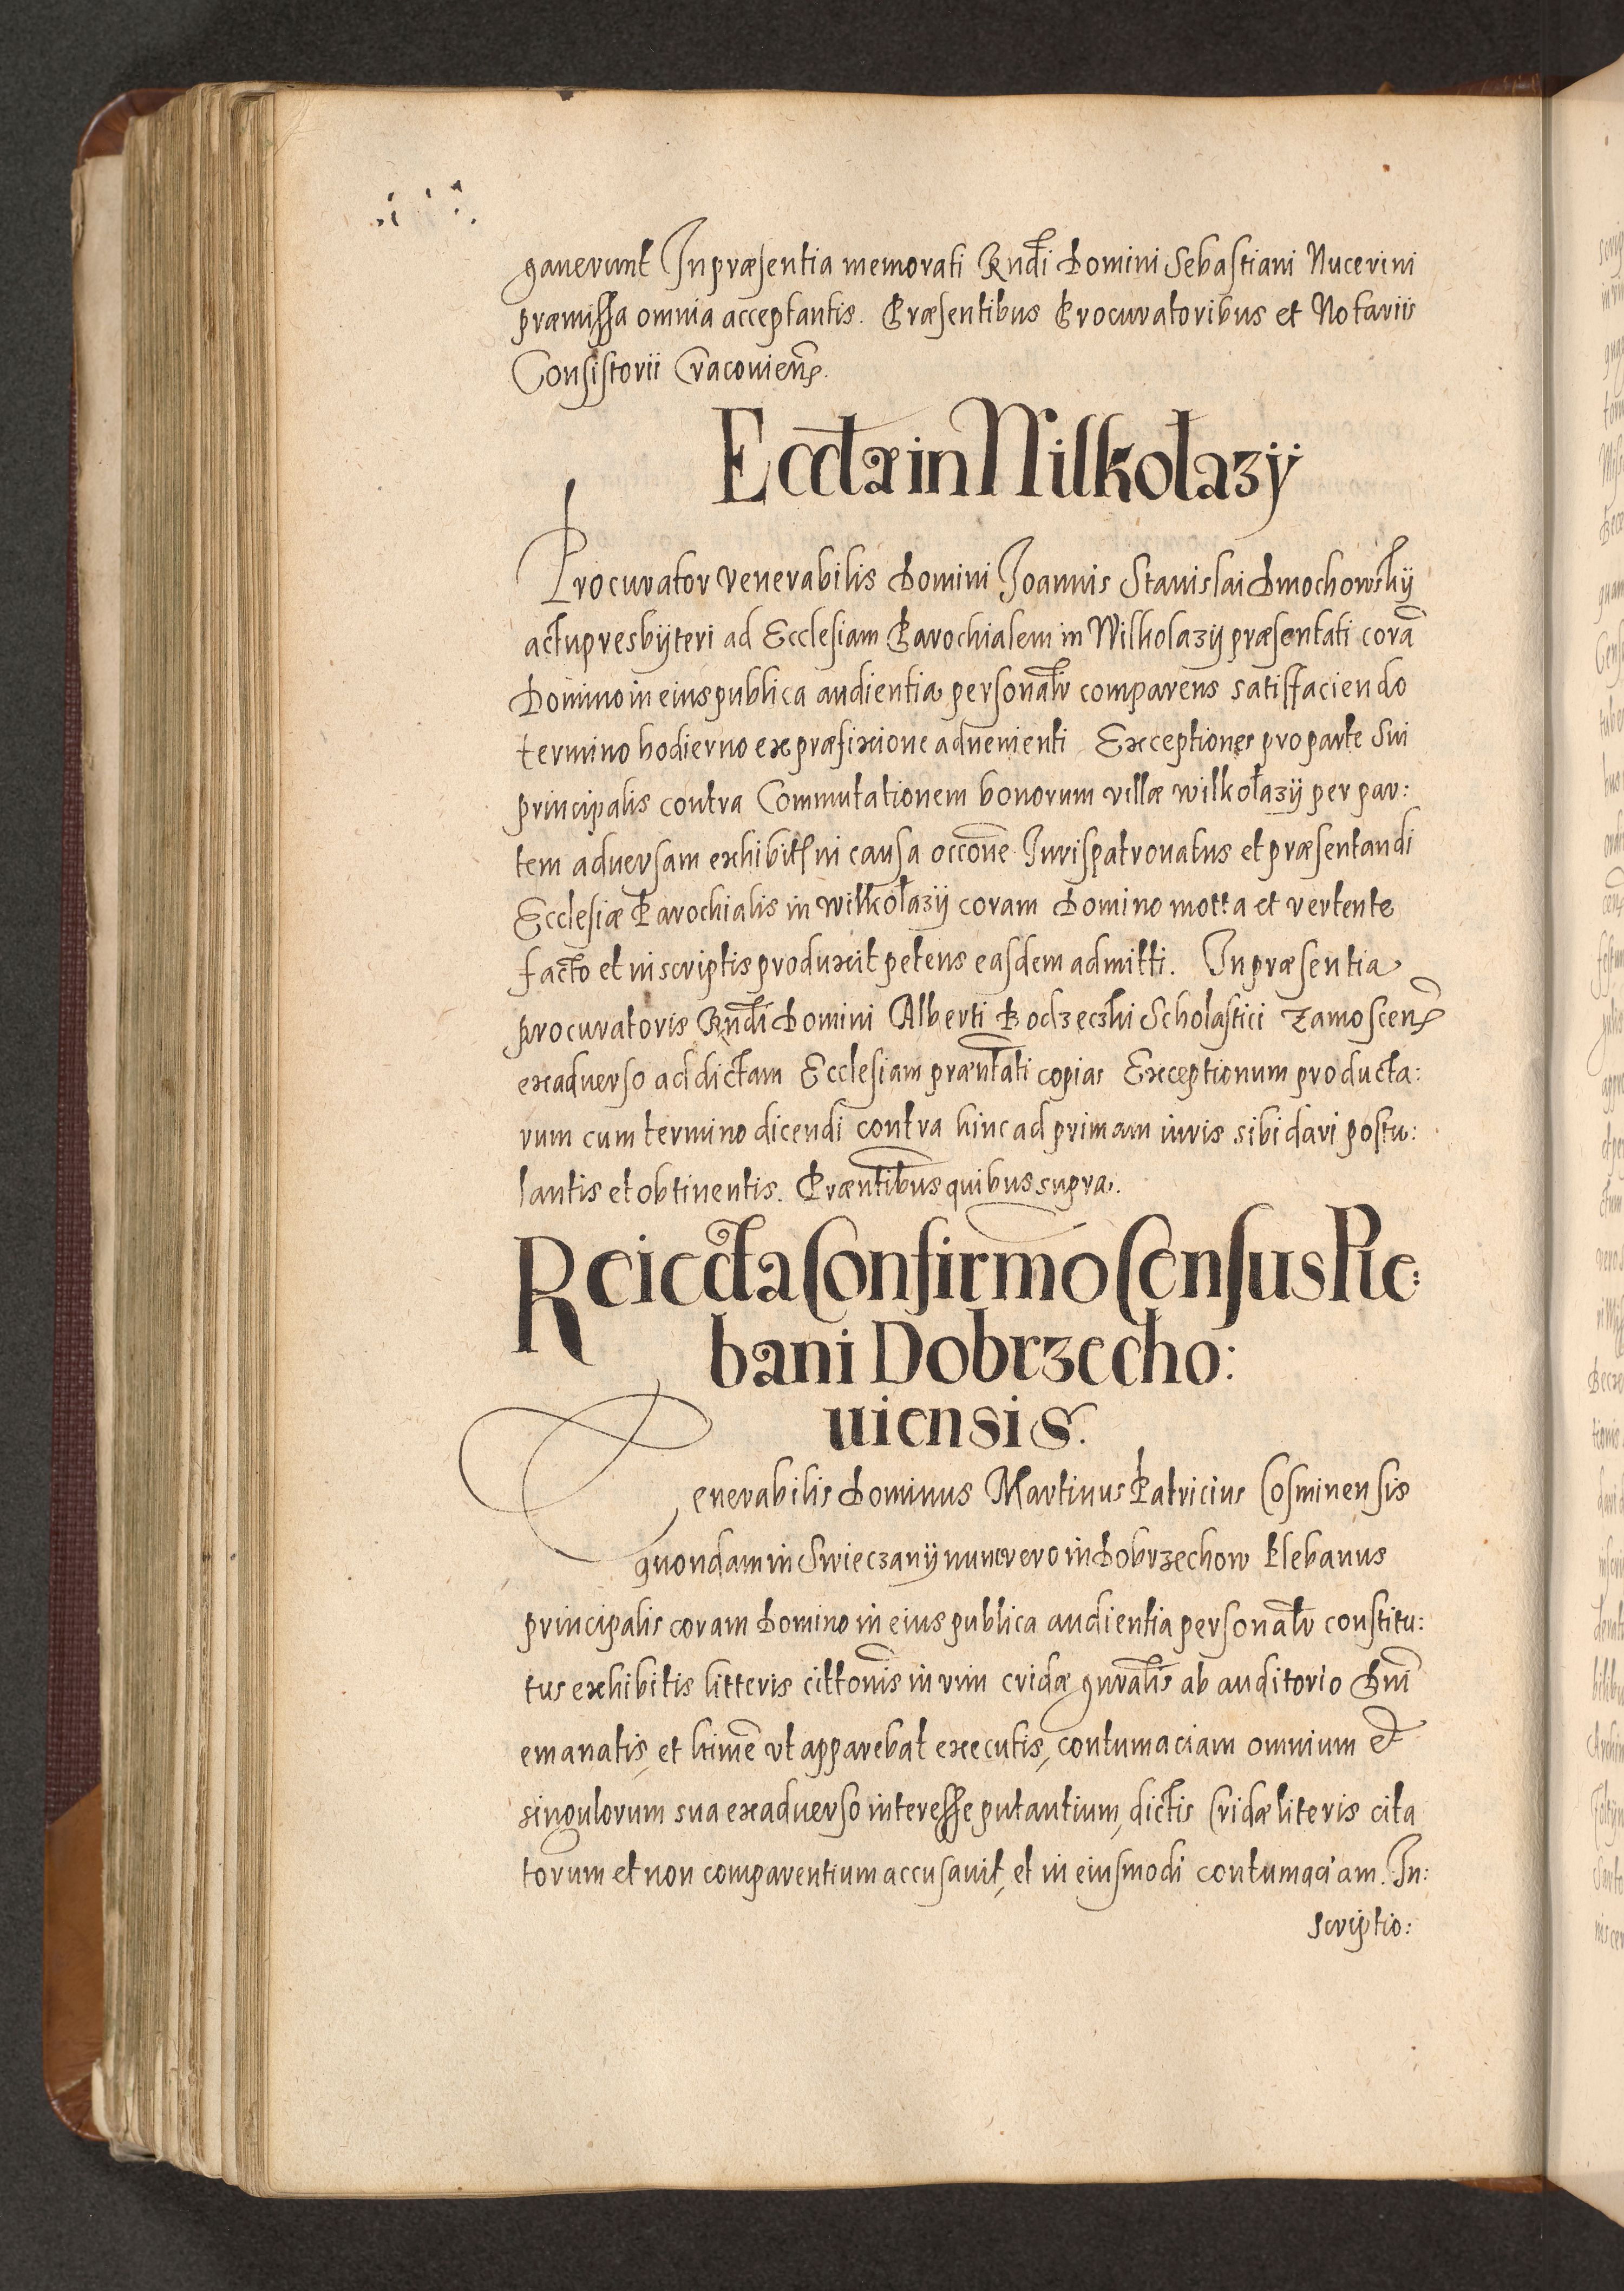 gauerunt In præsentia memorati Rndi Domini Sebastiani Nucerini
præmissa omnia acceptantis. Præsentibus Procuratoribus et Notariis
Consistorii Cracouien.
Eccla in Wilkołazÿ
Procurator venerabilis Domini Joannis Stanislai Dmochowskÿ
actu presbÿteri ad Ecclesiam Parochialem in Wilkolazÿ præsentati corã
Domino in eius publica audientia personalr comparens satisfaciendo
termino hodierno ex præfixione aduenienti Exceptiones pro parte sui
principalis contra Commutationem bonorum villæ wilkołazÿ per par:
tem aduersam exhibit in causa occone Jurispatronatus et præsentandi
Ecclesiæ Parochialis in wilkołazÿ coram Domino motta et vertente
facto et in scriptis produxit petens easdem admitti. In præsentia
procuratoris Rndi Domini Alberti Bodzęczki Scholastici Zamoscen
ex aduerso ad dictam Ecclesiam præntati copias Exceptionum producta:
rum cum termino dicendi contra hinc ad primam iuris sibi dari postu:
lantis et obtinentis. Præntibus quibus supra.
Reiecta Confirmo Census Ple:
bani Dobrzecho:
uiensis.
Venerabilis Dominus Martinus Patricius Cosminensis
quondam in Swieczanÿ nunc vero in Dobrzechow Plebanus
principalis coram Domino in eius publica audientia personalr constitu:
tus exhibitis litteris cittonis in vim cridæ gnralis ab auditorio Dni
emanatis, et hime vt apparebat executis, contumaciam omnium et
singulorum sua ex aduerso interesse putantium, dictis Cridæ literis cita
torum et non comparentium accusauit, et in eiusmodi contumaciam. In:
scriptio: